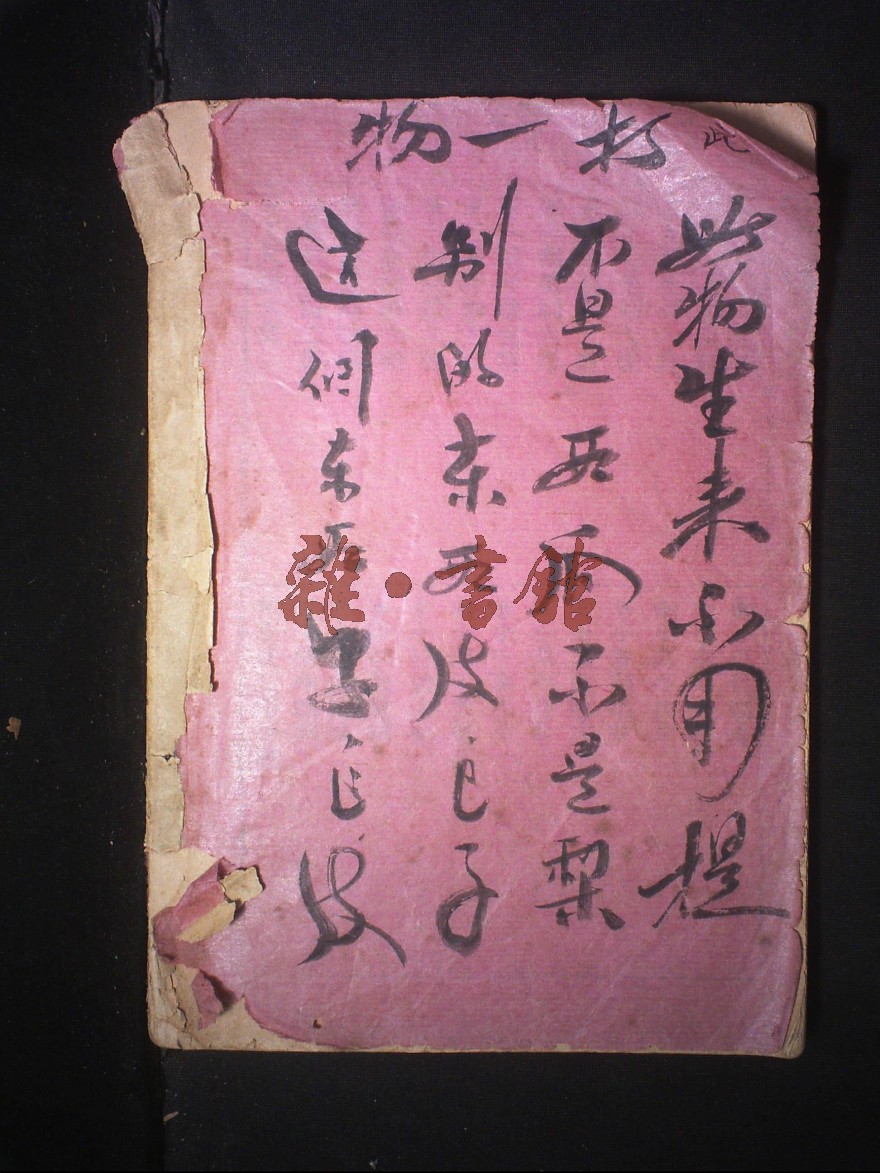 此
打一物
此物生来不用提
不是西瓜不是梨
别的东西皮包子
這個东西子包皮
雜·書館